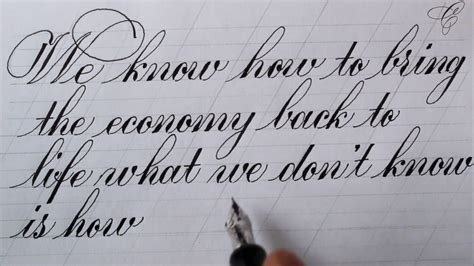 We know how to bring
the economy back to
life what we don't know
is how